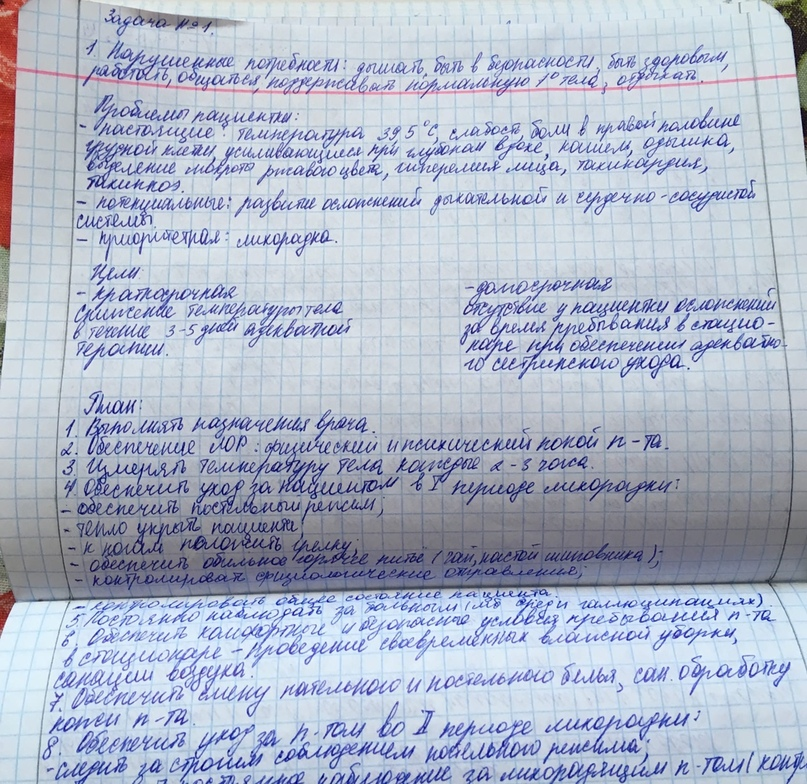 Задача №1.
1. Нарушенные потребности: дышать, быть в безопасности, быть здоровым,
работать, общаться, поддерживать нормальную t° тела, отдыхать.
Проблемы пациентки:
- настоящие: температура 39,5°С, слабость, боли в правой половине
грудной клетки, усиливающиеся при глубоком вдохе, кашель, одышка,
выделение мокроты ржавого цвета, гиперемия лица, тахикардия,
тахипноэ.
- потенциальные: развитие осложнений дыхательной и сердечно-сосудистой
системы
- приоритетная: лихорадка.
Цели:
- краткосрочная
снижение температуры тела
в течение 3-5 дней адекватной
терапии.
- долгосрочная
отсутствие у пациентки осложнений
за время пребывания в стацио-
наре при обеспечении адекватно-
го сестринского ухода.
План:
1. Выполнять назначения врача.
2. Обеспечение ЛОР: физический и психический покой п-та.
3. Измерять температуру тела каждые 2-3 часа.
4. Обеспечить уход за пациентом в I периоде лихорадки:
- обеспечить постельный режим;
- тепло укрыть пациента;
- к ногам положить грелку;
- обеспечить обильное горячее питьё (чай, настой шиповника);
- контролировать физиологические отправления;
- контролировать общее состояние пациента.
5. Постоянно наблюдать за больным (при галлюцинациях).
6. Обеспечить комфортные и безопасные условия пребывания п-та
в стационаре - проведение своевременных влажной уборки,
санации воздуха.
7. Обеспечить смену нательного и постельного белья, сан. обработку
кожи п-та.
8. Обеспечить уход за п-том во II периоде лихорадки:
- следить за строгим соблюдением постельного режима;
наблюдение за лихорадящим п-том (конт